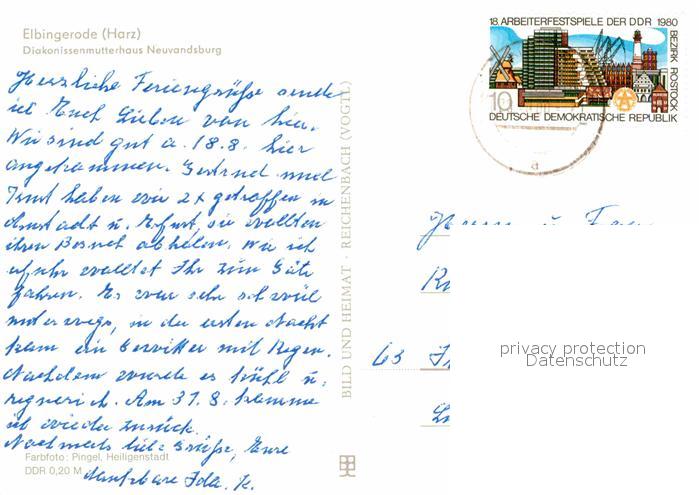 Elbingerode (Harz)
Diakonissenmutterhaus Neuvandsburg
Herzliche Feriengrüße sende
ich Euch Lieben von hier.
Wir sind gut a. 18.8. hier
angekommen. Gertrud und
Knut haben wir 2x getroffen in
Arnstadt u. Erfurt, sie wollten
ihren Besuch abholen. Wie ich
erfuhr wolltet Ihr zum Gute
fahren. Es war sehr schwül
unterwegs, in der ersten Nacht
kam ein Gewitter mit Regen.
Nachdem wurde es kühl u.
regnerisch. Am 31.8. komme
ich wieder zurück.
Nochmals liebe Grüße, Eure
dankbare Ida. K.
Farbfoto: Pingel, Heiligenstadt
DDR 0,20 M
BILD UND HEIMAT · REICHENBACH (VOGTL)
18. ARBEITERFESTSPIELE DER DDR 1980
BEZIRK ROSTOCK
10
DEUTSCHE DEMOKRATISCHE REPUBLIK
Herrn u. Frau
63
privacy protection
Datenschutz